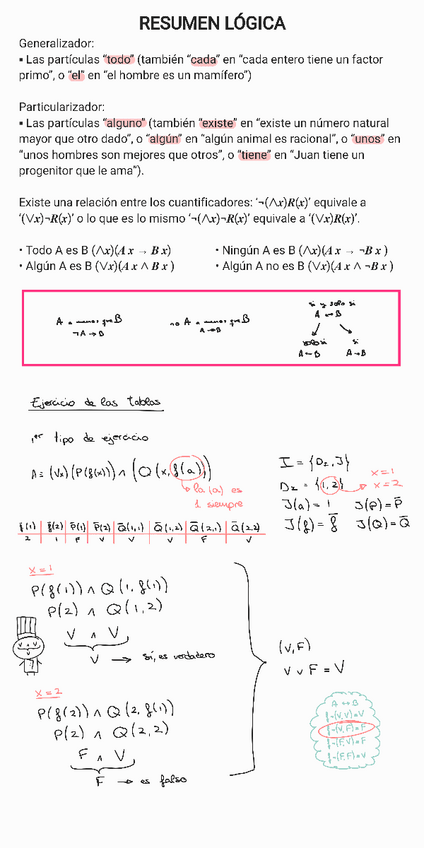 RESUMEN LÓGICA
Generalizador:
▪ Las partículas “todo” (también “cada” en “cada entero tiene un factor
primo”, o “el” en “el hombre es un mamífero”)
Particularizador:
▪ Las partículas “alguno” (también “existe” en “existe un número natural
mayor que otro dado”, o “algún” en “algún animal es racional”, o “unos” en
“unos hombres son mejores que otros”, o “tiene” en “Juan tiene un
progenitor que le ama”).
Existe una relación entre los cuantificadores: ‘¬(∧x)R(x)’ equivale a
‘(∨x)¬R(x)’ o lo que es lo mismo ‘¬(∧x)¬R(x)’ equivale a ‘(∨x)R(x)’.
• Todo A es B (∧x)(A x → B x)
• Ningún A es B (∧x)(A x → ¬B x )
• Algún A es B (∨x)(A x ∧ B x )
• Algún A no es B (∨x)(A x ∧ ¬B x )
A a menos que B
¬A → B
no A a menos que B
A → B
si y solo si
A ↔ B
solo si
A → B
Ejercicio de las tablas
1er tipo de ejercicio
A ≡ (∨x)(P(f(x)) ∧ (Q(x, f(a)))
la (a) es
1 siempre
I = {D_I, J}
D_I = {1, 2}
x = 1
x = 2
J(a) = 1 J(P) = P̄
J(f) = f̄ J(Q) = Q̄
f̄(1) f̄(2) P̄(1) P̄(2) Q̄(1,1) Q̄(1,2) Q̄(2,1) Q̄(2,2)
2 1 F V V V F V
x = 1
P(f(1)) ∧ Q(1, f(1))
P(2) ∧ Q(1, 2)
V ∧ V
V → sí, es verdadero
x = 2
P(f(2)) ∧ Q(2, f(1))
P(2) ∧ Q(2, 2)
F ∧ V
F → es falso
(V, F)
V ∨ F = V
A ↔ B
f→(V,V) = V
f→(V,F) = F
f→(F,V) = F
f→(F,F) = V